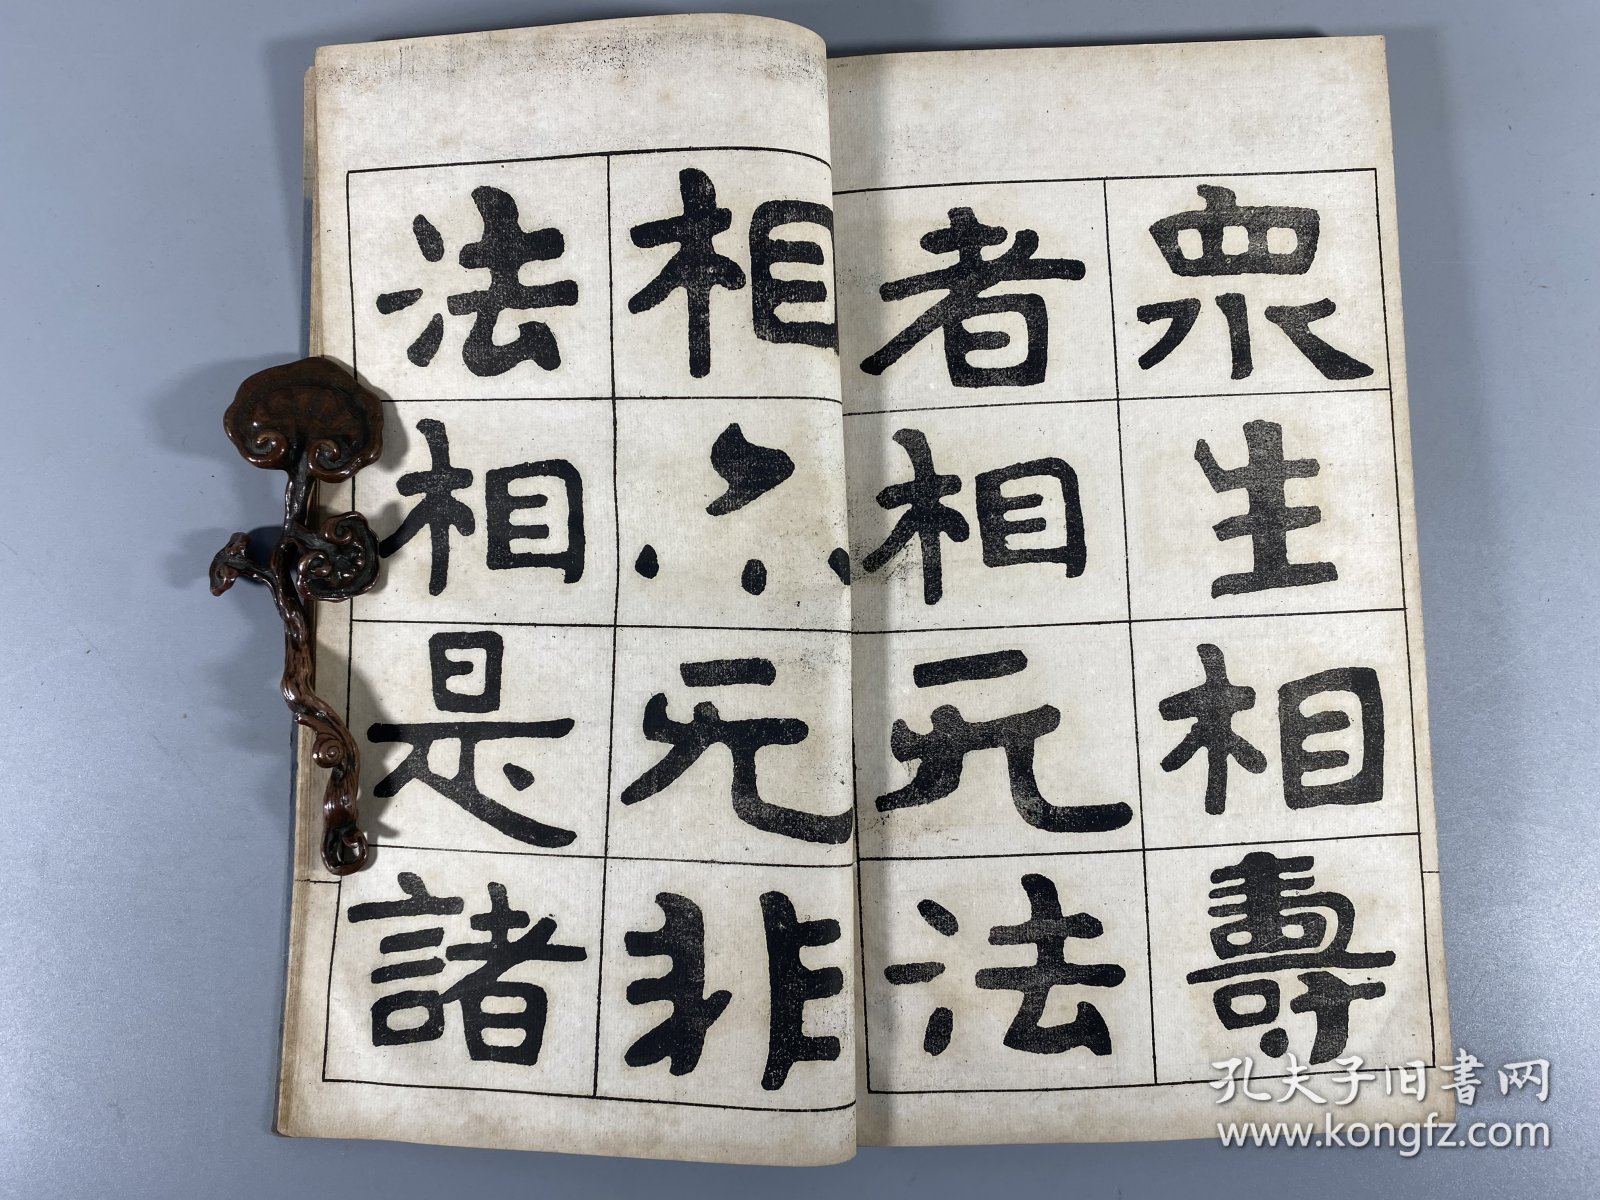 眾生相壽
者相无法
相亦无非
法相是諸
孔夫子旧書网
www.kongfz.com